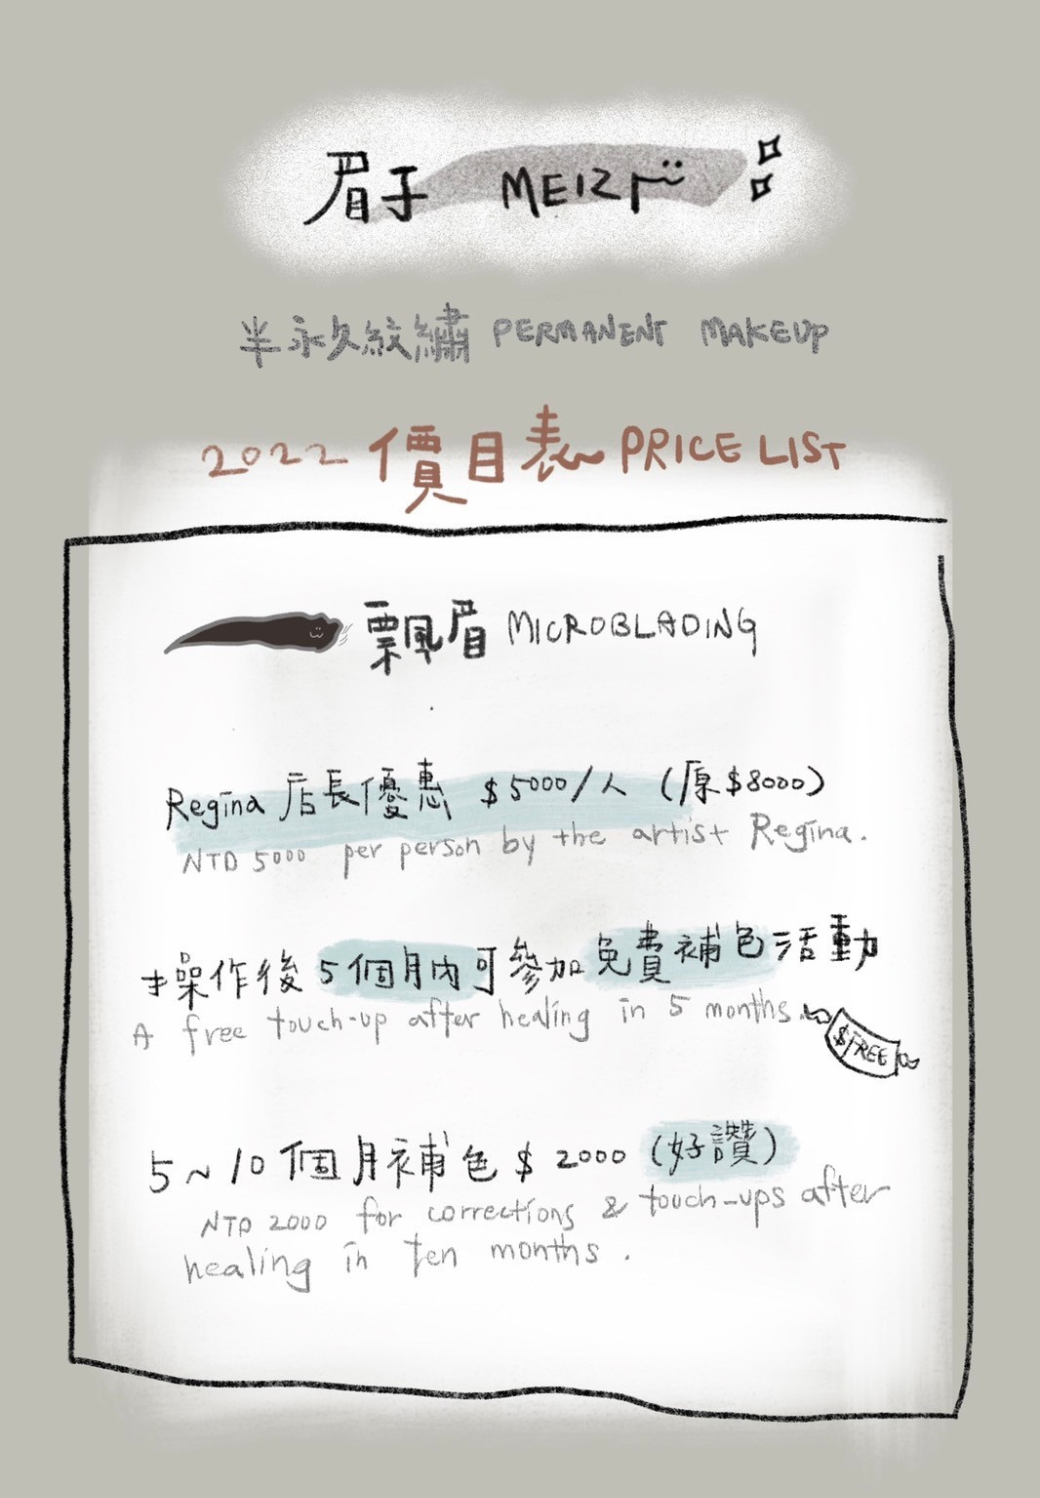 眉子 MEIZI
半永久紋繡 PERMANENT MAKEUP
2022 價目表 PRICE LIST
飄眉 MICROBLADING
Regina 店長優惠 $5000/人 (原$8000)
NTD 5000 per person by the artist Regina.
操作後 5個月內可參加免費補色活動
A free touch-up after healing in 5 months.
$FREE
5~10個月補色 $2000 (好讚)
NTD 2000 for corrections & touch-ups after
healing in ten months.